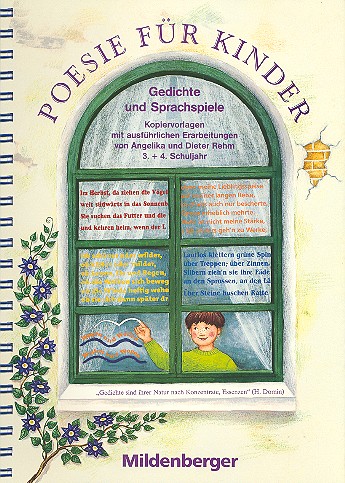 POESIE FÜR KINDER
Gedichte
und Sprachspiele
Kopiervorlagen
mit ausführlichen Erarbeitungen
von Angelika und Dieter Rehm
3. + 4. Schuljahr
Im Herbst, da ziehen die Vögel
weit südwärts in das Sonnenl
Sie suchen das Futter und die
und kehren heim, wenn der L
meine Lieblingsspeise
langen Reihe,
mir nur bescherte,
mehrte,
nicht meine Stärke,
geh'n zu Werke.
Lautlos klettern grüne Spin
über Treppen, über Zinnen.
Silbern zieh'n sie ihre Fäde
an den Sprossen, an den Lä
Über Steine huschen Ratte
wilder,
und Regen,
beweg
heftig wehe
dann später dr
„Gedichte sind ihrer Natur nach Konzentrate, Essenzen" (H. Domin)
Mildenberger